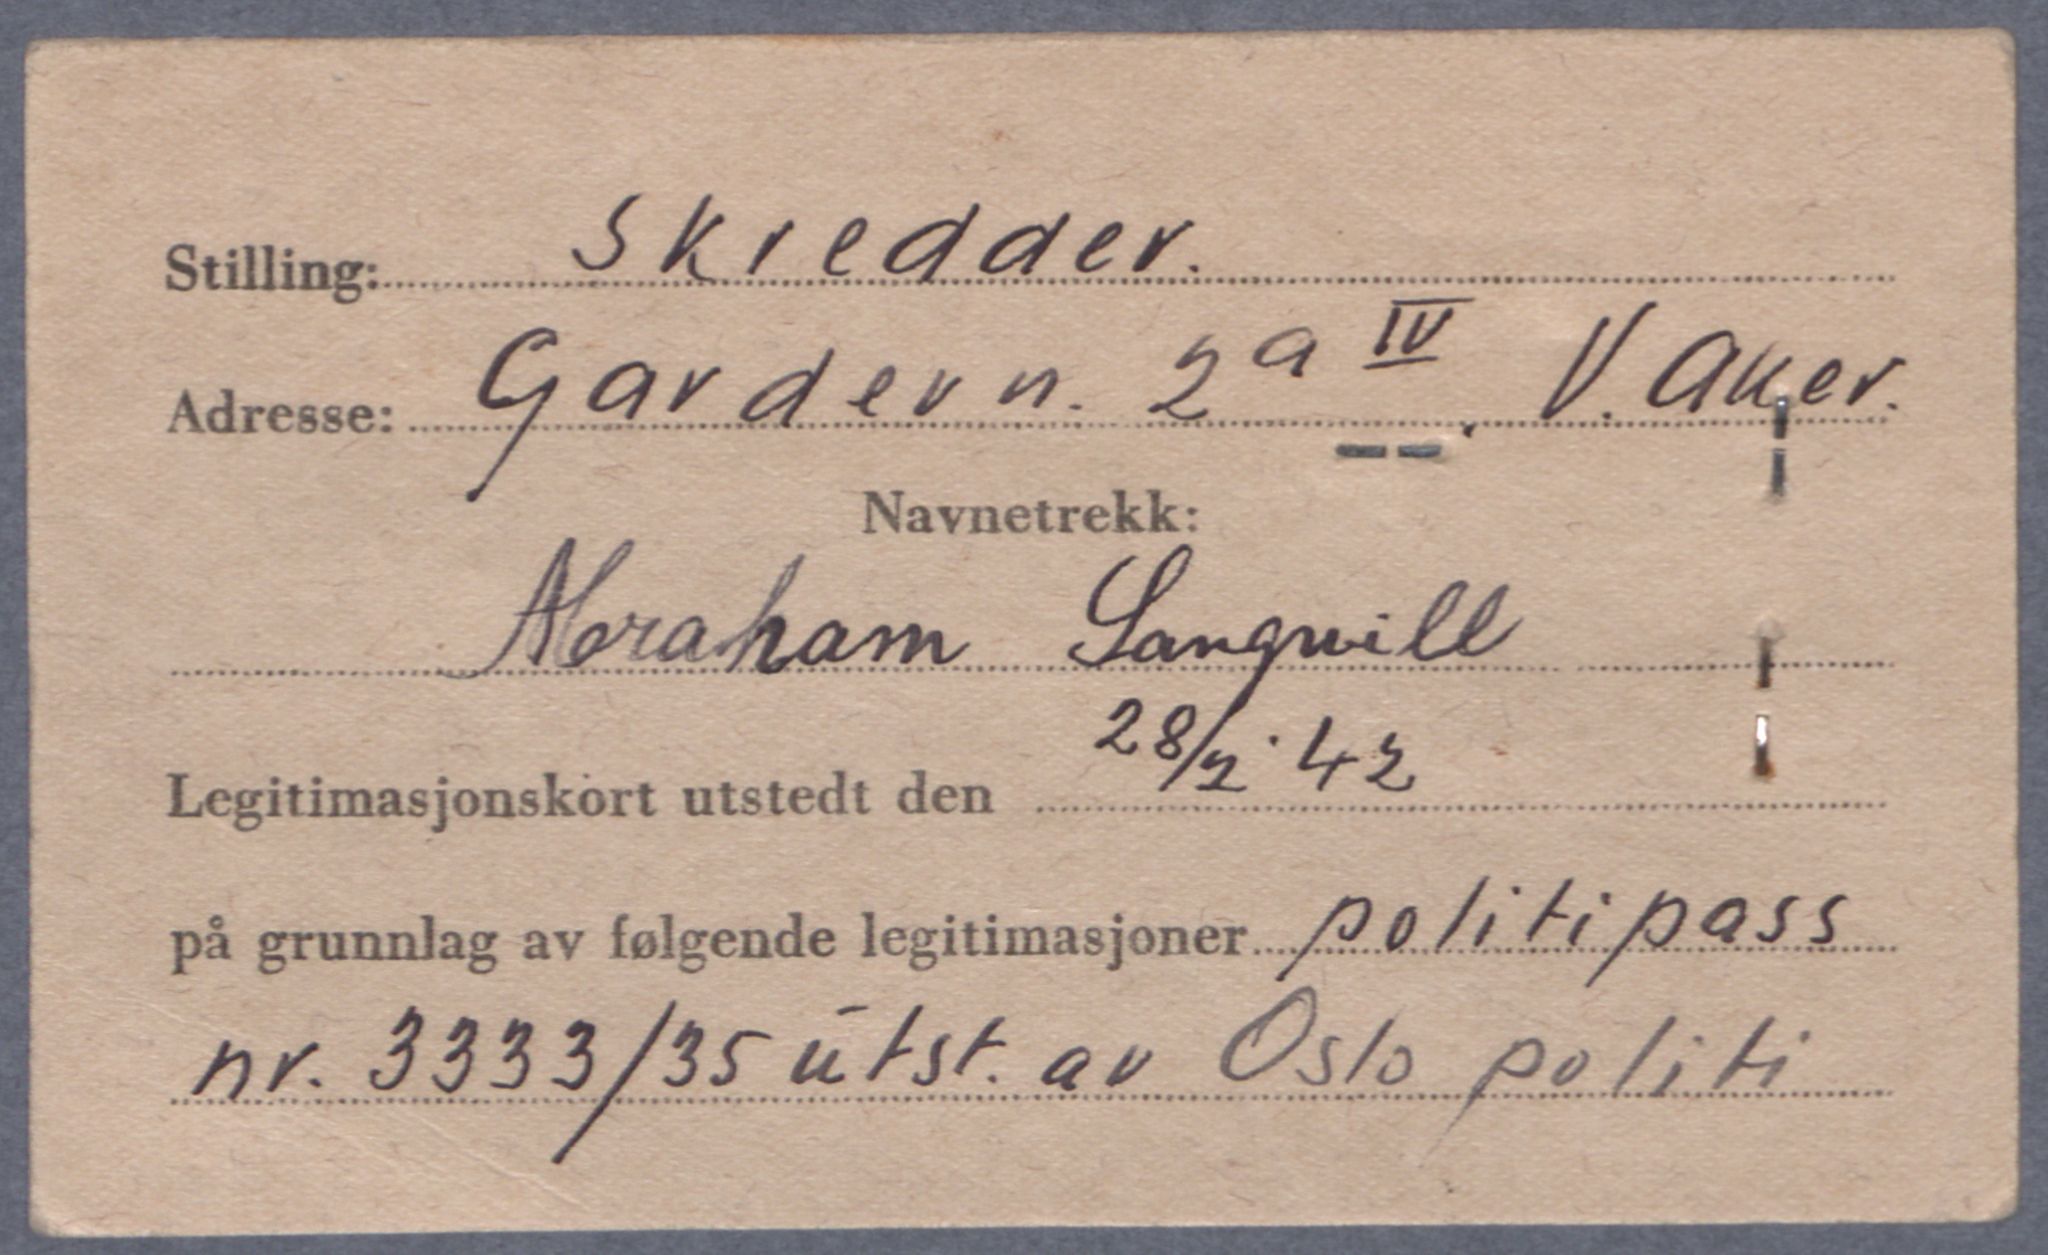 Stilling: Skredder.
Adresse: Gardern. 2a IV. V. Aker.
Navnetrekk:
Abraham Sangwill
28/2. 42
Legitimasjonskort utstedt den
på grunnlag av følgende legitimasjoner politipass
nr. 3333/35 utst. av Oslo politi